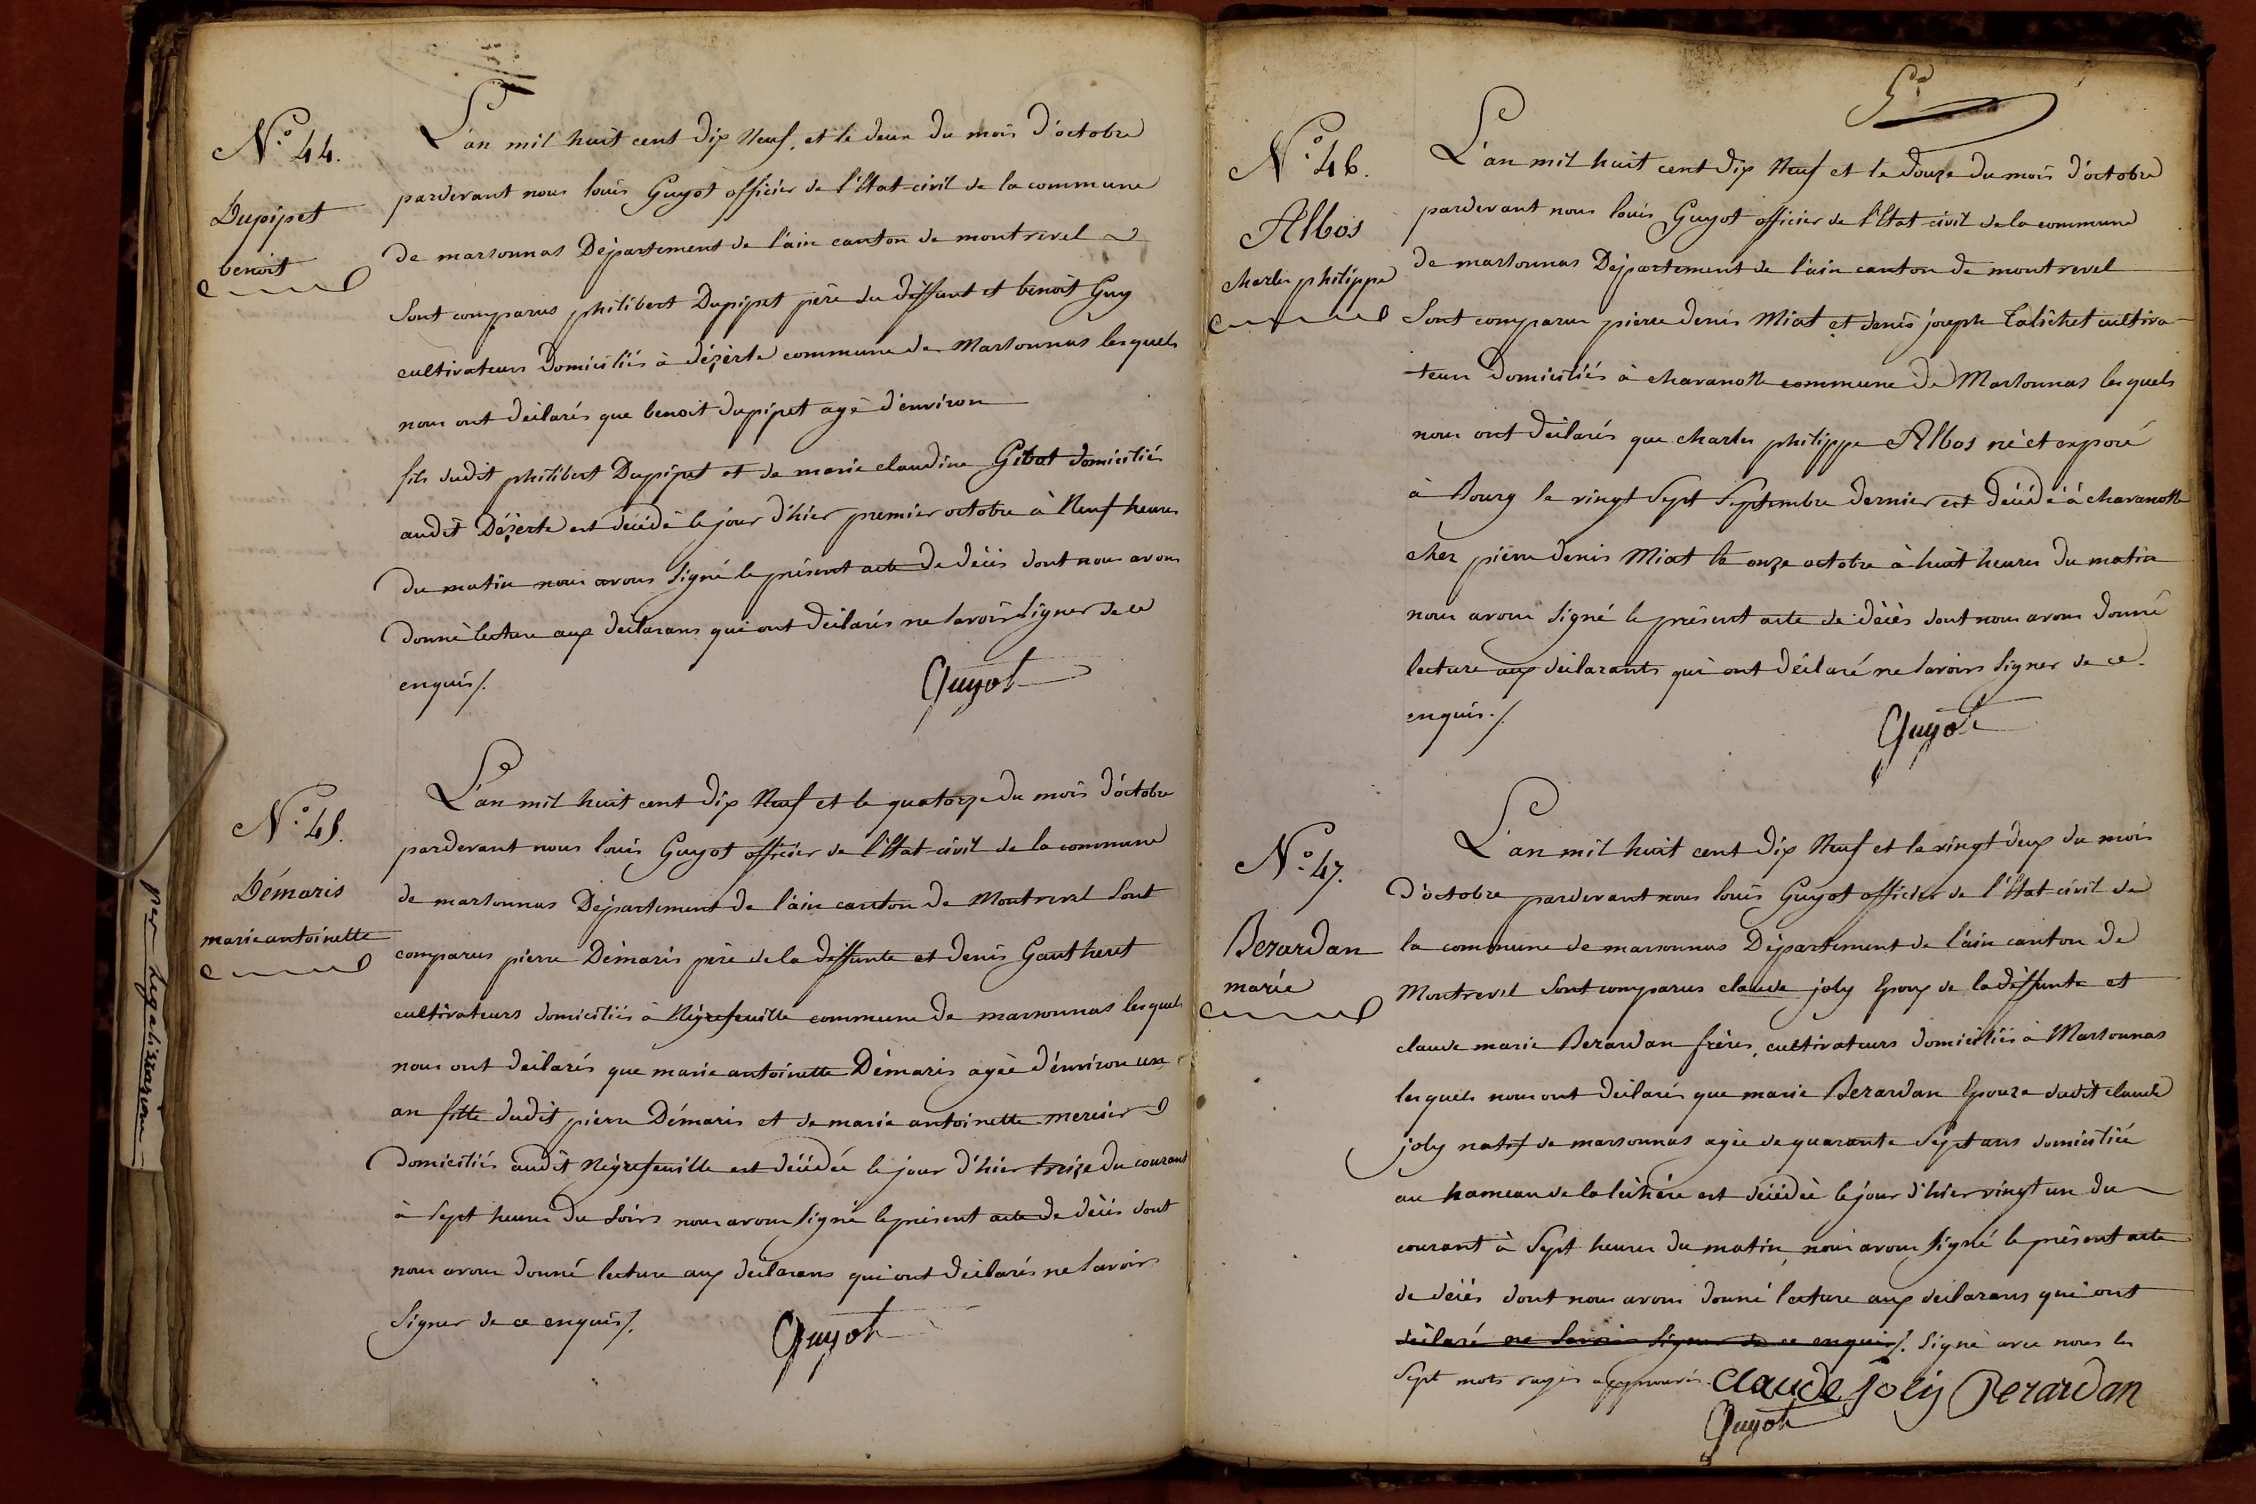 N.° 44.
Dupipet
benoit
L'an mil huit cent dix Neuf, et le deux du mois d'octobre
pardevant nous louis Guyot officier de l'Etat civil de la commune
de marsonnas Département de l'ain canton de montrevel
Sont comparus philibert Dupipet père du deffunt et benoit Guy
cultivateurs domiciliés à dézerte commune de Marsonnas lesquels
nous ont déclarés que benoit dupipet agé d'environ
fils dudit philibert Dupipet et de marie claudine Gibat domiciliés
audit Dézerte est décédé le jour d'hier premier octobre à Neuf heures
du matin nous avons Signé le présent acte de décés dont nous avons
donné lecture aux déclarans qui ont déclarés ne savoir Signer de ce
enquis/.
Guyot
N.° 45.
Démaris
marie antoinette
L'an mil huit cent dix Neuf et le quatorze du mois d'octobre
pardevant nous louis Guyot officier de l'Etat civil de la commune
de marsonnas Département de l'ain canton de Montrevel Sont
comparus pierre Démaris père de la deffunte et denis Gautheret
cultivateurs domiciliés à Négrefeuille commune de marsonnas lesquels
nous ont déclarés que marie antoinette Démaris agée d'environ un
an fille dudit pierre Démaris et de marie antoinette mercier
domiciliés audit Négrefeuille est décédée le jour d'hier treize du courant
à Sept heures du Soirs nous avons Signé le présent acte de décés dont
nous avons donné lecture aux déclarans qui ont déclarés ne Savoir
Signer de ce enquis/.
Guyot
per legalizzazione
N.° 46.
Albos
charles philippe
L'an mil huit cent dix Neuf et le douze du mois d'octobre
pardevant nous louis Guyot officier de l'Etat civil de la commune
de marsonnas Département de l'ain canton de montrevel
Sont comparus pierre denis Miat et denis joseph Talichet cultiva-
teurs domiciliés à chavanotte commune de Marsonnas lesquels
nous ont déclarés que charles philippe Albos né et exposé
à Bourg le vingt Sept Septembre dernier est décédé à chavanotte
chez pierre denis Miat le onze octobre à huit heures du matin
nous avons Signé le présent acte de décès dont nous avons donné
lecture aux déclarants qui ont déclaré ne savoirs Signer de ce
enquis./.
Guyot
N.° 47.
Berardan
marie
L'an mil huit cent dix Neuf et le vingt deux du mois
d'octobre pardevant nous louis Guyot officier de l'Etat civil de
la commune de marsonnas Département de l'ain canton de
Montrevel Sont comparus claude joly Epoux de la deffunte et
claude marie Berardan frères, cultivateurs domiciliés à Marsonnas
lesquels nous ont déclarés que marie Berardan Epouze dudit claude
joly natif de marsonnas agée de quarante Sept ans domiciliée
au hameau de la léchère est décédée le jour d'hier vingt un du
courant à Sept heures du matin, nous avons Signé le présent acte
de décés dont nous avons donné lecture aux déclarans qui ont
déclaré ne Savoir Signer de ce enquis/. Signé avec nous les
Sept mots rayés approuvés. claude joly Berardan
Guyot